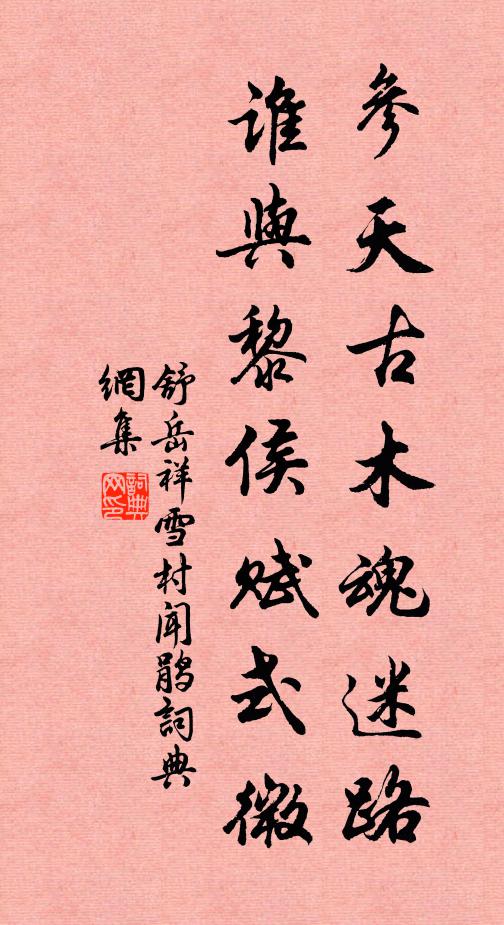 參天古木魂迷路
誰與黎侯賦式微
舒岳祥雪村闻鹃詞典
網集
詞典
网印